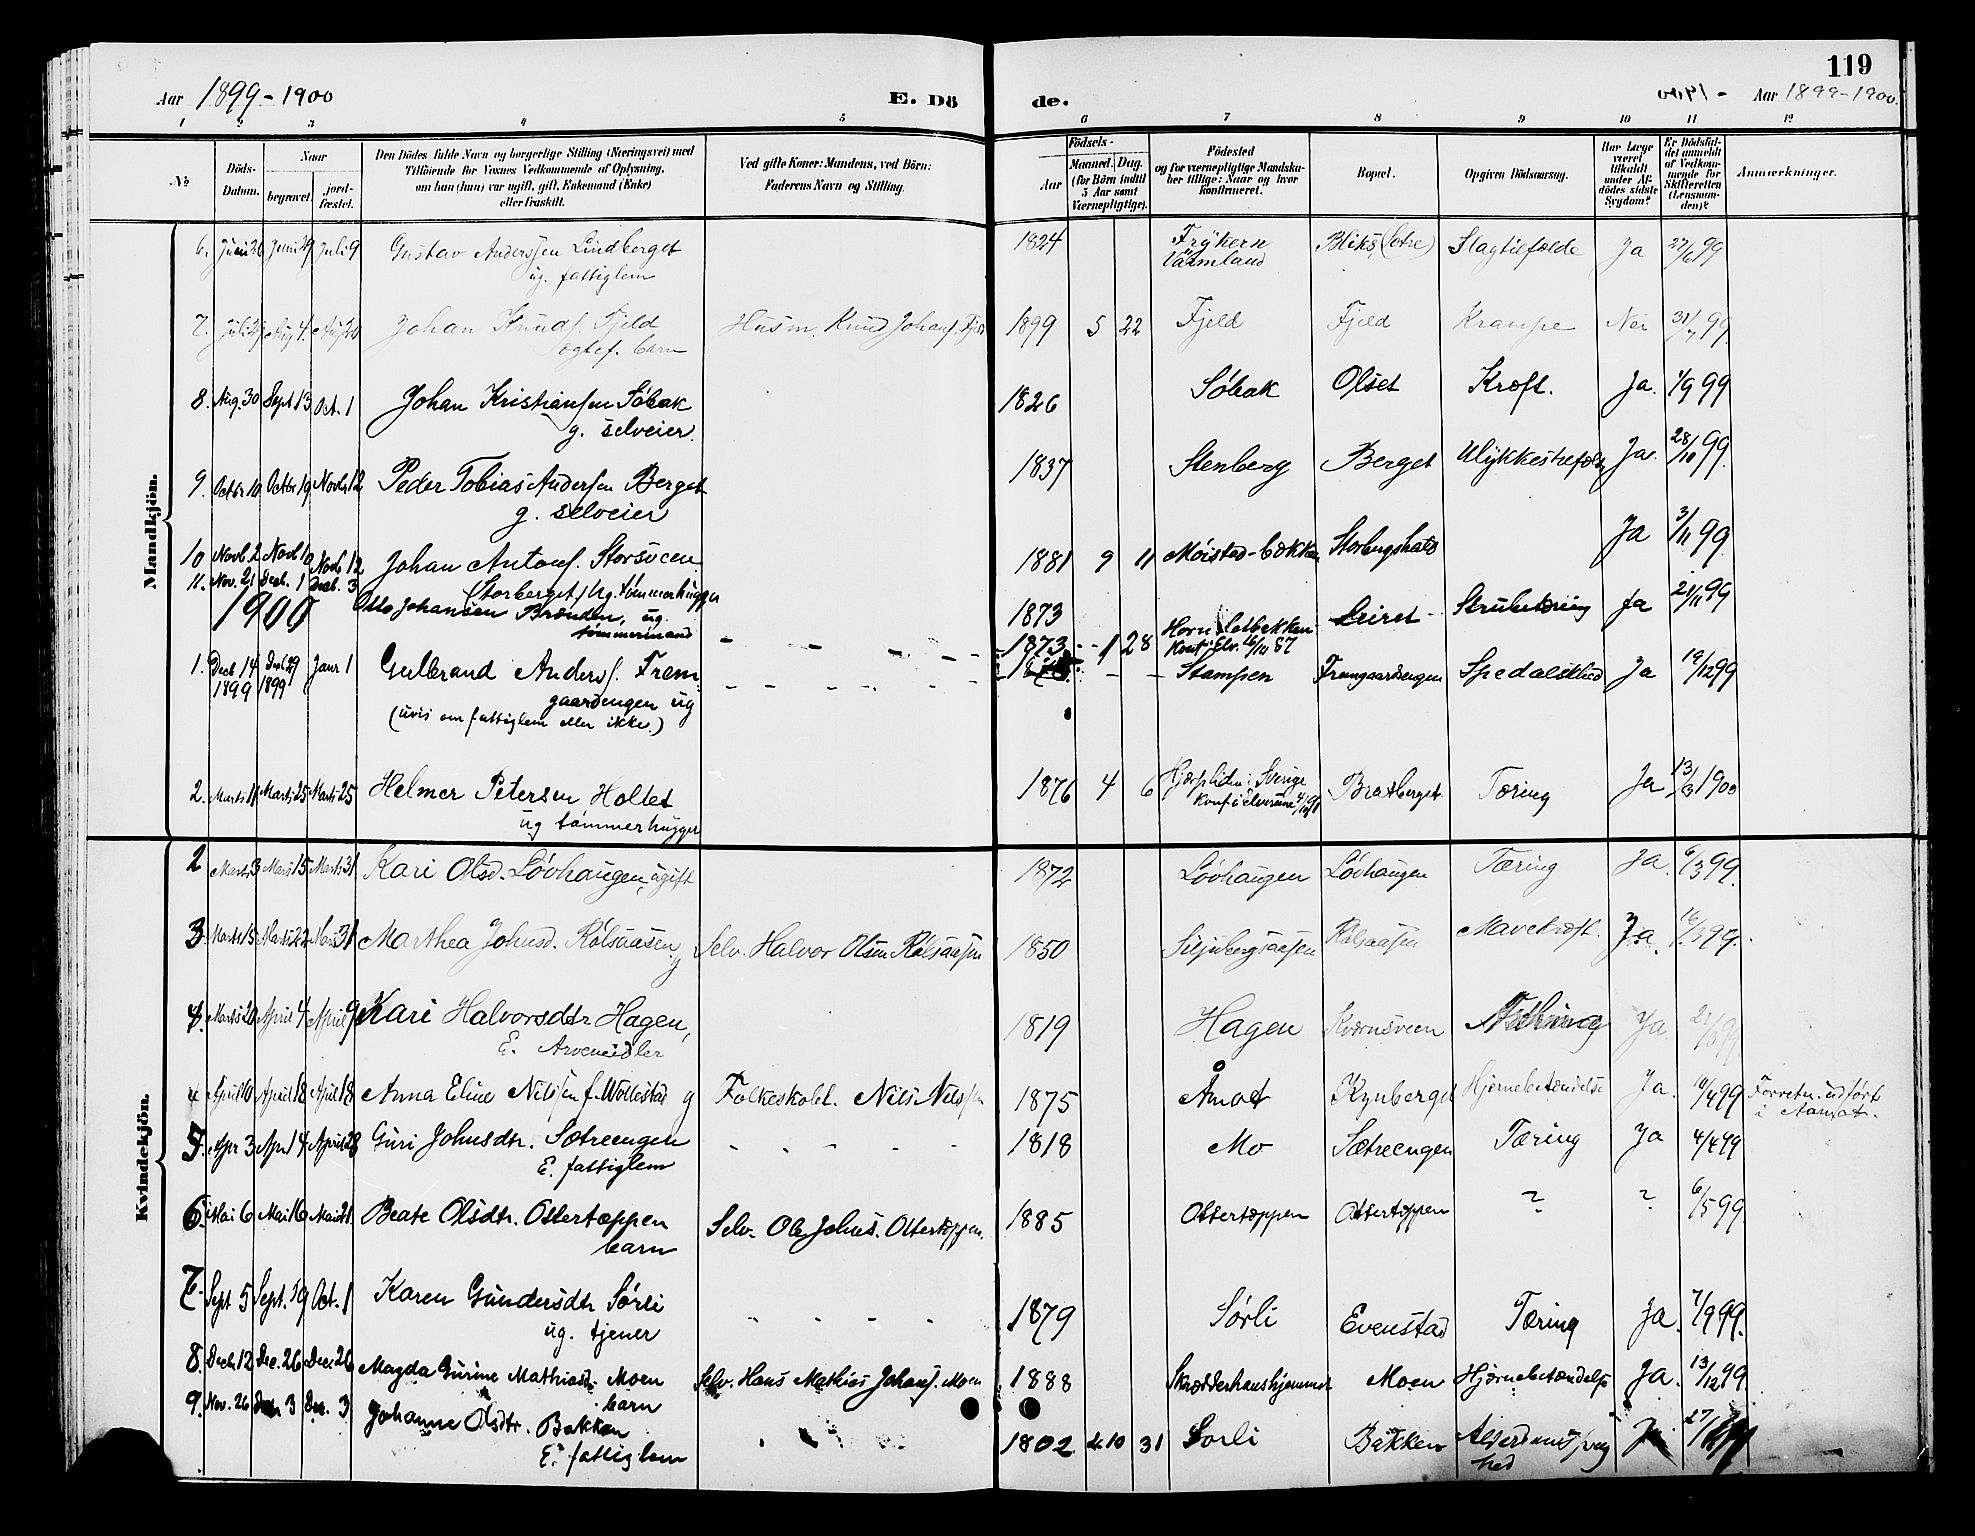 119
Aar 1899-1900
E. Dö de.
- 1900 Aar 1899-1900.
1 2 3 4 5 6 7 8 9 10 11 12
No.
Döds-Datum.
Naar
begravet.
jordfæstet.
Den Dödes fulde Navn og borgerlige Stilling (Næringsvei) med
Tilföiende for Voxnes Vedkommende af Oplysning,
om han (hun) var ugift, gift, Enkemand (Enke)
eller fraskilt.
Ved gifte Koner: Mandens, ved Börn:
Faderens Navn og Stilling.
Födsels-
Aar
Maaned. Dag.
(for Börn indtil
5 Aar samt
Værnepligtige).
Födested
og for værnepligtige Mandskaber tillige: Naar og hvor
konfirmeret.
Bopæl.
Opgiven Dödsaarsag.
Har Læge
været
tilkaldt
under Afdödes sidste
Sygdom?
Er Dödsfaldet anmeldt
af Vedkommende for
Skifteretten
(Lensmanden)?
Anmærkninger.
Mandkjön.
6. Juni 26 Juni 29 Juli 9 Gustav Anderssen Lindberget 1824 Frykern Bliks (Sætre) Slagtilfælde Ja 27/6 99
ug. fattiglem Värmland
7. Aug 4. Johan Knuds. Fjeld Husm. Knud Johans. Fjeld 1899 5 22 Fjeld Fjeld Krampe Nei 31/7 99.
ægtef. barn
8. Aug. 30 Sept 13 Oct. 1 Johan Kristiansen Söbak 1826 Söbak Olset Kræft. Ja. 1/9 99
g. selveier.
9. Octbr 10 Octbr 19 Novb. 12 Peder Tobias Andersen Berget 1837 Stenberg Berget Ulykkestilfælde Ja. 28/10 99.
g. selveier
10 Novb 2 Novb 10 Novb 12 Johan Antons. Storsveen 1881 9 11 Möistad-bækken Ja 3/11 99.
(Storberget) Ug. tömmerhugger
11. Nov. 21 Decb. 1 Decb. 3 Otto Johansen Brænden, ug. 1873 Leiret - Strubetæring Ja 21/11 99
tömmermand 1873 1 28 Konf. i Elv. 16/10 87
1900
1. Decb 14 1899 Decb 29 1899 Janr 1 Gulbrand Anders. Frem- Stampen Fremgaardsengen Spedalskhed Ja 19/12 99
gaardsengen ug
(uvis om fattiglem eller ikke.)
2. Marts 11 Marts 25 Marts 25 Helmer Petersen Holtet 1876 4 6 Sverige Bratberget Tæring Ja 13/3 1900
ug tömmerhugger Konf i Elverum
Kvindekjön.
2 Marts 3 Marts 15 Marts 31 Kari Olsd. Lövhaugen, ugift 1872 Lövhaugen Lövhaugen Tæring Ja. 6/3 99.
3. Marts 15 Marts 22 Marts 31 Marthea Johnsd. Rölsaasen, g Selv. Halvor Olsen Rölsaasen 1850 Siljubergsaasen Rölsaasen Mavekræft. Ja. 16/3 99.
4. Marts 20 April 4 April 9 Kari Halvorsdtr Hagen, 1819 Hagen Kværnsveen Ja.
E.
4 April 10 April 18 April 18 Anna Eline Nilssen f. Wollestad g Folkeskolel. Nils Nilssen 1875 Åmot Kynberget Hjernebetændelse Ja. 10/4 99 Forretn. udført
i Aamot.
5. Apr 3 Apr 14 April 28 Guri Johnsdtr. Sætreengen - - - - 1818 Mo Sætreengen Tæring Ja 4/4 99
E. fattiglem
6. Mai 6 Mai 16 Mai 21 Beate Olsdtr. Ottertøppen Selv. Ole Johns. Ottertöppen. 1885 Ottertøppen Ottertöppen ? ? 6/5 99.
barn
7. Sept 5 Sept. 19 Oct. 1 Karen Gundersdtr Sörli - - - - 1879 Sörli Evenstad Tæring Ja. 7/9 99.
ug. tjener
8. Decb. 12 Dec. 26 Dec. 26 Magda Gurine Mathiasd. Moen Selv. Hans Mathias Johans. Moen 1888 Skrædderhanshjemmet Moen Hjernebetændelse Ja. 13/12 99.
barn
9. Nov. 26 Decb 3 Dec. 3 Johanne Olsdtr. Bakken 1802 10 31 Sorli Bakken Alderdomssvaghed Ja
E. fattiglem